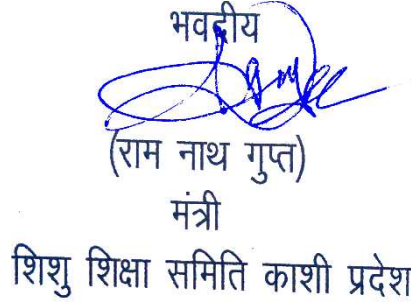 भवदीय
(राम नाथ गुप्त)
मंत्री
शिशु शिक्षा समिति काशी प्रदेश